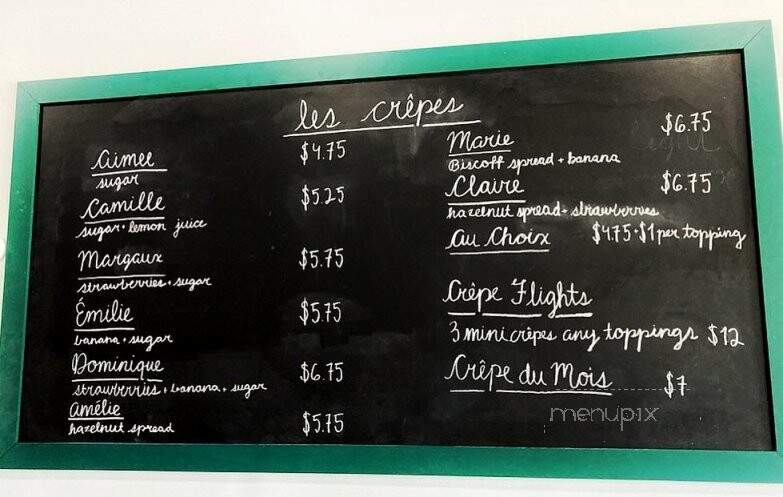 les crêpes
Aimee $4.75
sugar
Camille $5.25
sugar + lemon juice
Margaux $5.75
strawberries + sugar
Émilie $5.75
banana + sugar
Dominique $6.75
strawberries + banana + sugar
Amélie
hazelnut spread $5.75
Marie $6.75
Biscoff spread + banana
Claire $6.75
hazelnut spread + strawberries
Au Choix $4.75 + $1 per topping
Crêpe Flights
3 mini crêpes any toppings $12
Crêpe du Mois $7
menupix